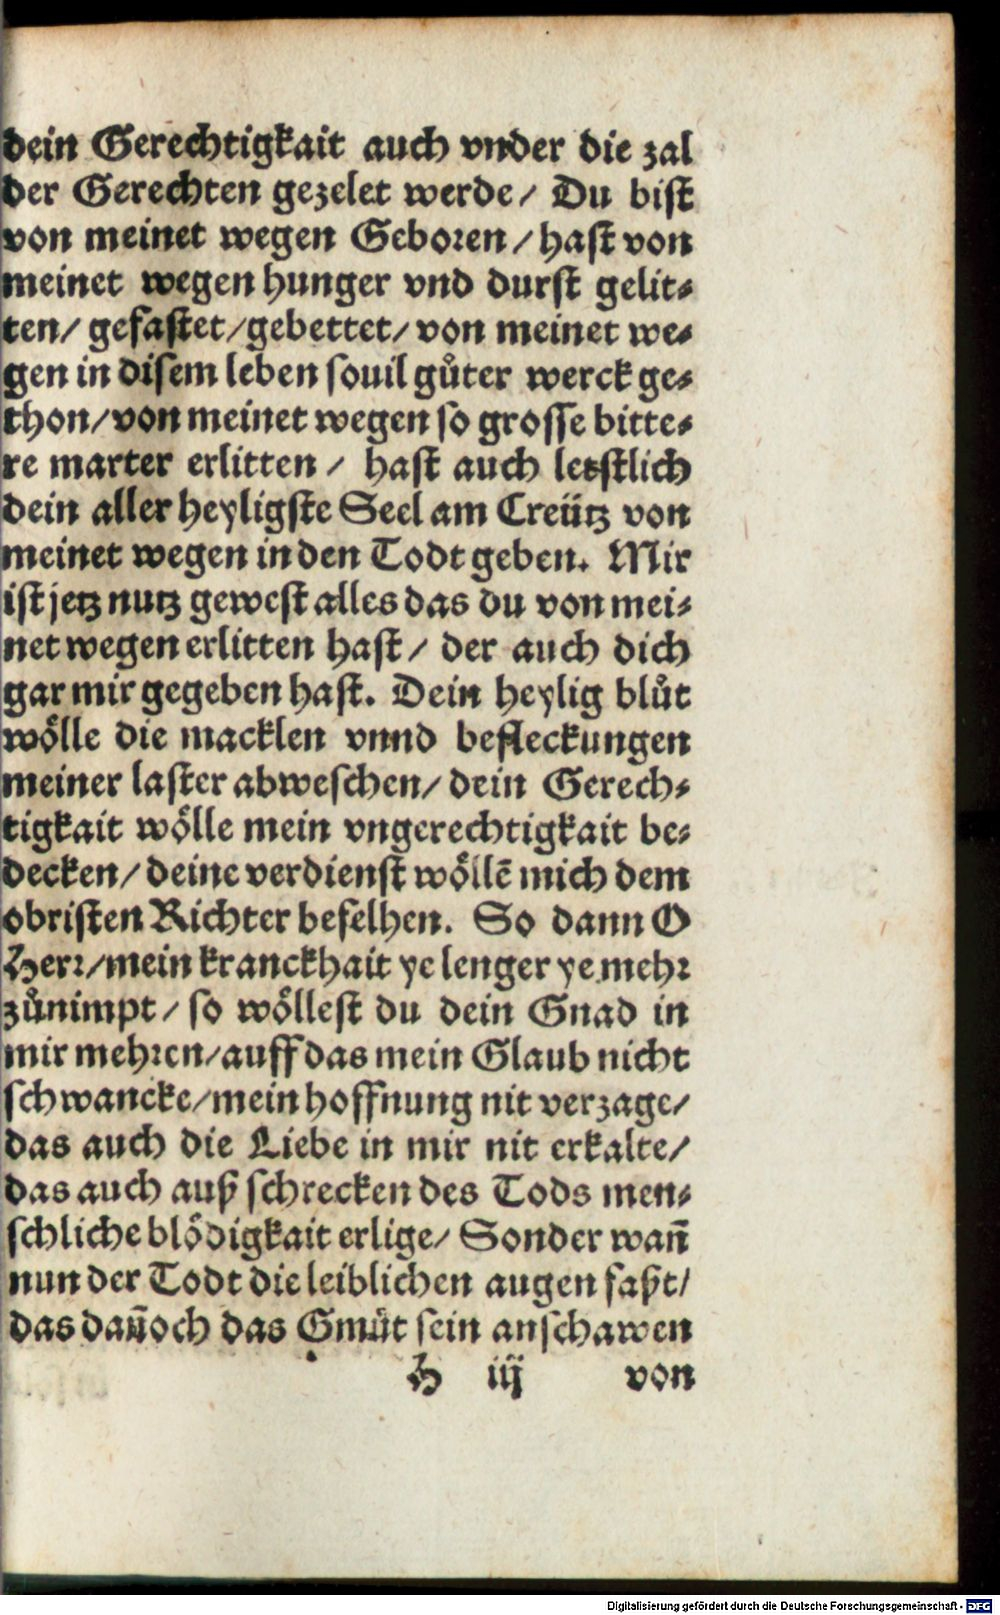 dein Gerechtigkait auch vnder die zal
der Gerechten gezelet werde/ Du bist
von meinet wegen Geboren/ hast von
meinet wegen hunger vnd durst gelit-
ten/ gefastet/ gebettet/ von meinet we-
gen in disem leben souil gůter werck ge-
thon/ von meinet wegen so grosse bitte-
re marter erlitten/ hast auch letstlich
dein aller heyligste Seel am Creütz von
meinet wegen in den Todt geben. Mir
ist jetz nutz gewest alles das du von mei-
net wegen erlitten hast/ der auch dich
gar mir gegeben hast. Dein heylig blůt
wölle die macklen vnnd befleckungen
meiner laster abweschen/ dein Gerech-
tigkait wölle mein vngerechtigkait be-
decken/ deine verdienst wöllē mich dem
obristen Richter befelhen. So dann O
Herr/ mein kranckhait ye lenger ye mehr
zůnimpt/ so wöllest du dein Gnad in
mir mehren/ auff das mein Glaub nicht
schwancke/ mein hoffnung nit verzage/
das auch die Liebe in mir nit erkalte/
das auch auß schrecken des Tods men-
schliche blödigkait erlige/ Sonder wañ
nun der Todt die leiblichen augen faßt/
das dañoch das Gmůt sein anschawen
H iij von
Digitalisierung gefördert durch die Deutsche Forschungsgemeinschaft - DFG